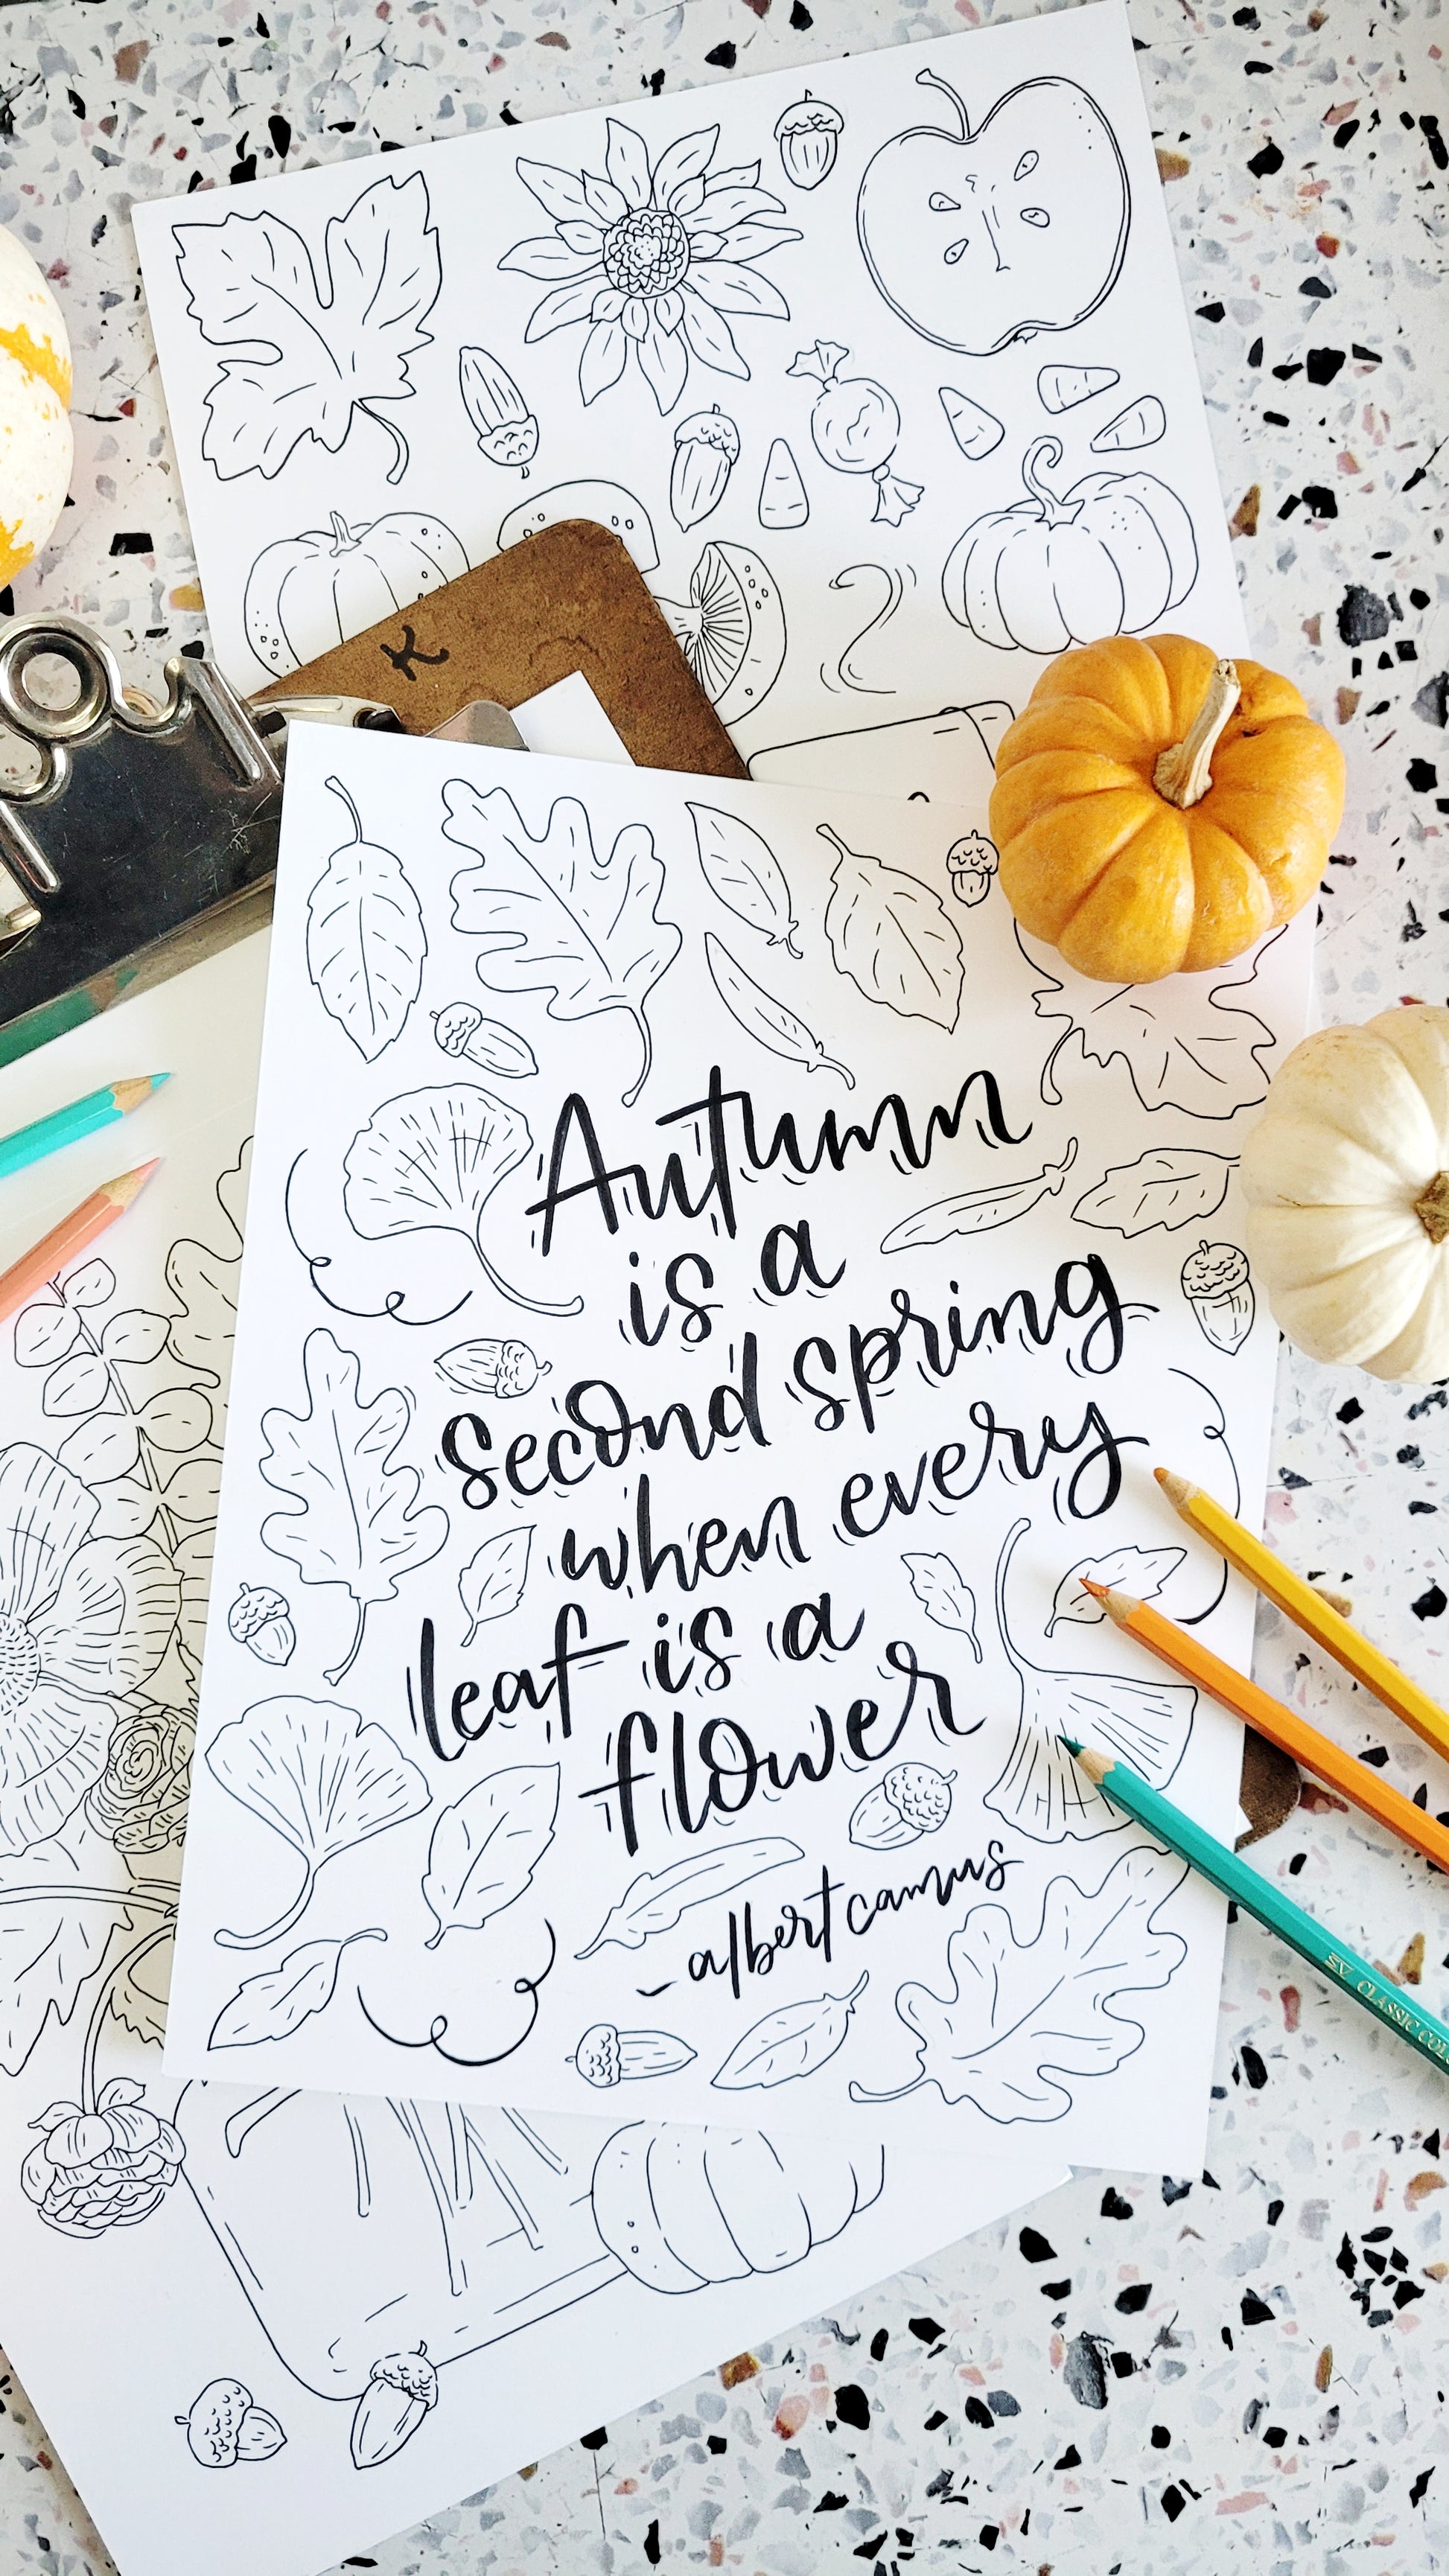 K
Autumn
is a
second spring
when every
leaf is a
flower
- albert camus
CLASSIC COL